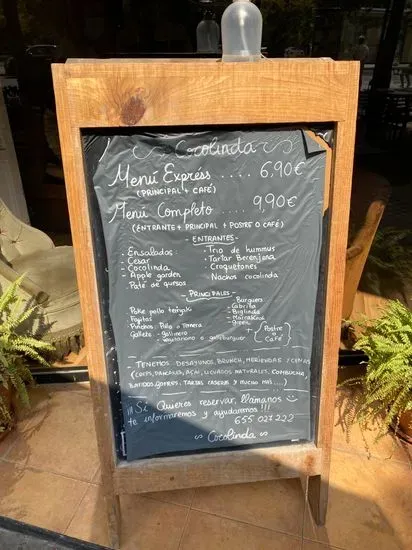 Cocolinda
Menú Express ..... 6,90€
(PRINCIPAL + CAFÉ)
Menú Completo ..... 9,90€
(ENTRANTE + PRINCIPAL + POSTRE O CAFÉ)
- ENTRANTES -
· Ensaladas:
- Cesar
- Cocolinda
- Apple garden
· Paté de quesos
· Trio de hummus
· Tartar Berenjena
· Croquetones
· Nachos cocolinda
- PRINCIPALES -
Poke pollo teriyaki
Fajitas
Pinchos: Pollo o Ternera
· Burguers
- Cabrita
- Biglinda
- Marrakech
+ { Postre o Café }
TENEMOS DESAYUNOS, BRUNCH, MERIENDAS / CENAS
(CREPS, PANCAKES, AÇAI, LICUADOS NATURALES, KOMBUCHA,
BATIDOS, GOFRES, TARTAS CASERAS Y MUCHO MÁS ....)
¡¡¡ Si Quieres reservar, llámanos
te informaremos y ayudaremos !!!
655 027 222
~ Cocolinda ~